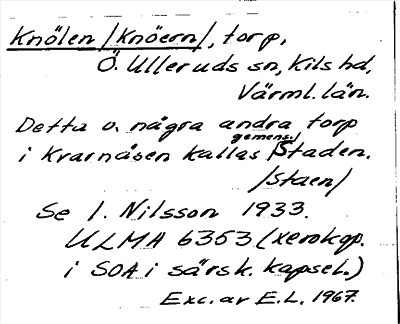 Knölen /Knöern/, torp,
Ö. Ulleruds sn, Kils hd,
Värml. län.
Detta o. några andra torp
i Kvarnåsen kallas gemens. /Staden.
/Staen/
Se I. Nilsson 1933.
ULMA 6353 (xerokop.
i SOA i särsk. kapsel.)
Exc. av E.L. 1967.